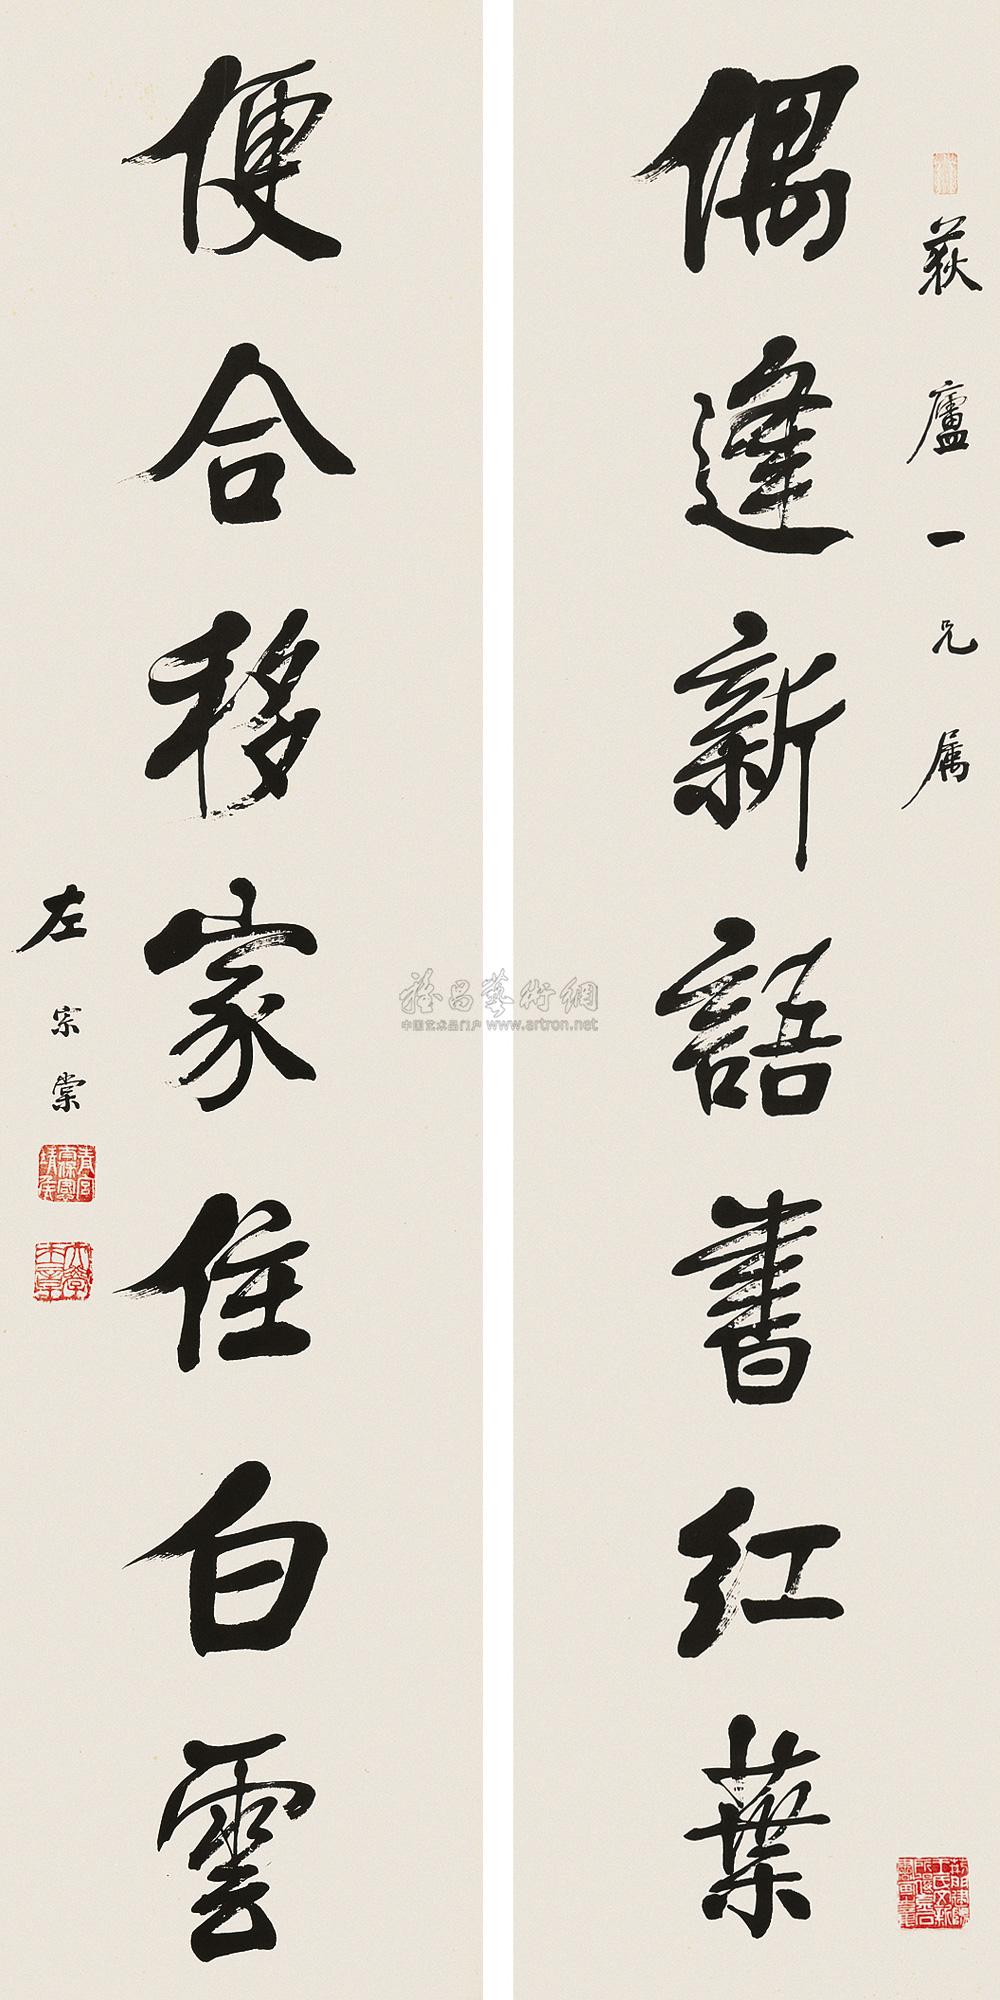 荻廬一兄属
偶逢新語書红葉
便合移家住白雲
左宗棠
雅昌藝術網
中国艺术品门户 www.artron.net